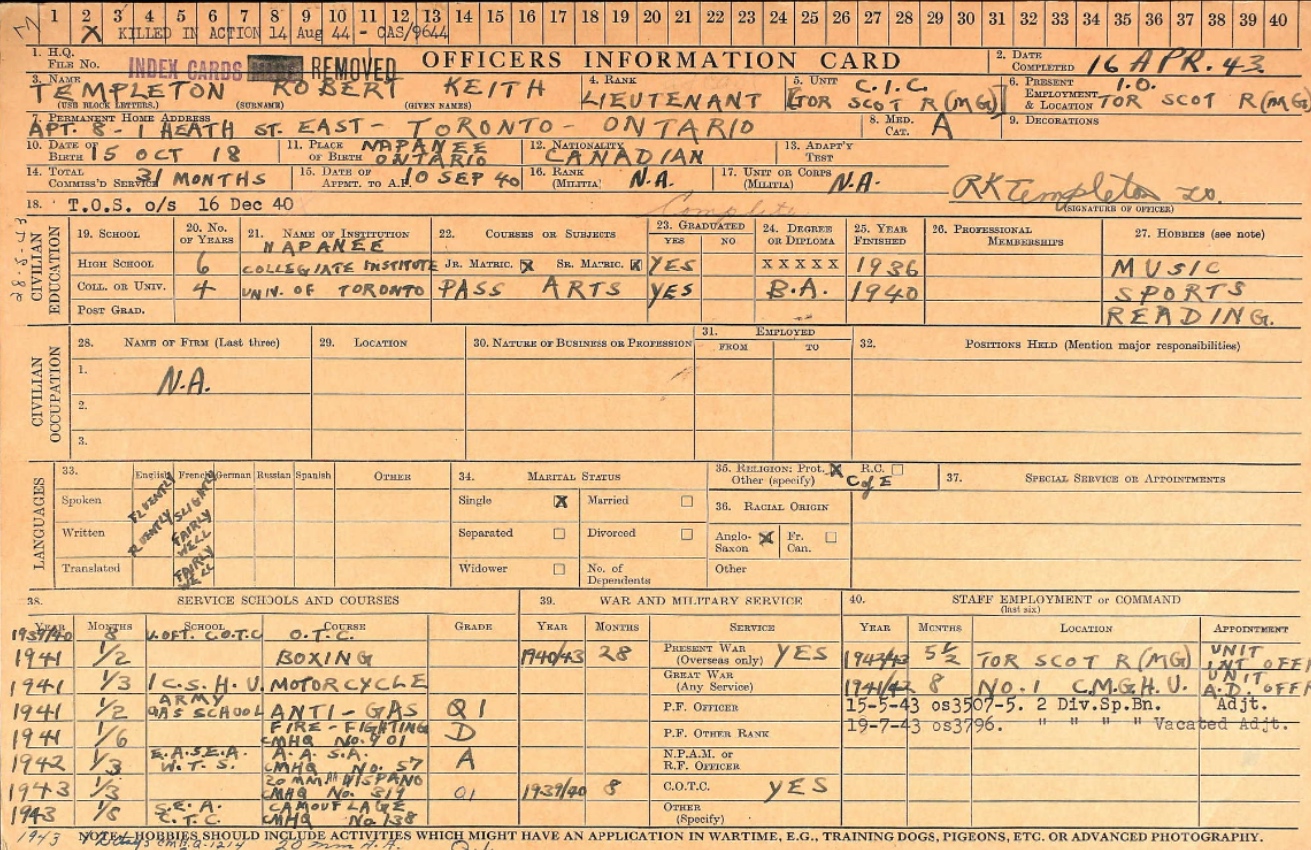 1 2 3 4 5 6 7 8 9 10 11 12 13 14 15 16 17 18 19 20 21 22 23 24 25 26 27 28 29 30 31 32 33 34 35 36 37 38 39 40
X KILLED IN ACTION 14 Aug 44 - CAS/9644
1. H.Q. FILE No. INDEX CARDS REMOVED OFFICERS INFORMATION CARD 2. DATE COMPLETED 16 APR. 43
3. NAME TEMPLETON ROBERT KEITH 4. RANK LIEUTENANT 5. UNIT C.I.C. [TOR SCOT R (MG)] 6. PRESENT EMPLOYMENT & LOCATION I.O. TOR SCOT R (MG)
(USE BLOCK LETTERS.) (SURNAME) (GIVEN NAMES)
7. PERMANENT HOME ADDRESS APT. 8 - 1 HEATH ST. EAST - TORONTO - ONTARIO 8. MED. CAT. A 9. DECORATIONS
10. DATE OF BIRTH 15 OCT 18 11. PLACE OF BIRTH NAPANEE ONTARIO 12. NATIONALITY CANADIAN 13. ADAPT'Y TEST
14. TOTAL COMMISS'D SERVICE 31 MONTHS 15. DATE OF APPMT. TO A.F. 10 SEP 40 16. RANK (MILITIA) N.A. 17. UNIT OR CORPS (MILITIA) N.A. RK Templeton
18. T.O.S. o/s 16 Dec 40 Complete (SIGNATURE OF OFFICER)
CIVILIAN EDUCATION
19. SCHOOL 20. No. OF YEARS 21. NAME OF INSTITUTION 22. COURSES OR SUBJECTS 23. GRADUATED YES NO 24. DEGREE OR DIPLOMA 25. YEAR FINISHED 26. PROFESSIONAL MEMBERSHIPS 27. HOBBIES (see note)
HIGH SCHOOL 6 NAPANEE COLLEGIATE INSTITUTE JR. MATRIC. X SR. MATRIC. X YES X X X X X 1936 MUSIC
COLL. OR UNIV. 4 UNIV. OF TORONTO PASS ARTS YES B.A. 1940 SPORTS
POST GRAD. READING.
CIVILIAN OCCUPATION
28. NAME OF FIRM (Last three) 29. LOCATION 30. NATURE OF BUSINESS OR PROFESSION 31. EMPLOYED FROM TO 32. POSITIONS HELD (Mention major responsibilities)
1. N.A.
2.
3.
LANGUAGES
33. English French German Russian Spanish OTHER 34. MARITAL STATUS 35. RELIGION: Prot. X R.C. Other (specify) C of E 37. SPECIAL SERVICE OR APPOINTMENTS
Spoken FLUENTLY SLIGHTLY Single X Married 36. RACIAL ORIGIN
Written FLUENTLY FAIRLY WELL Separated Divorced Anglo-Saxon X Fr. Can.
Translated FAIRLY WELL Widower No. of Dependents Other
38. SERVICE SCHOOLS AND COURSES 39. WAR AND MILITARY SERVICE 40. STAFF EMPLOYMENT or COMMAND (last six)
YEAR MONTHS SCHOOL COURSE GRADE YEAR MONTHS SERVICE YEAR MONTHS LOCATION APPOINTMENT
1939/40 8 U. OF T. C.O.T.C O.T.C.
1941 1/2 BOXING 1940/43 28 PRESENT WAR (Overseas only) YES 5 1/2 TOR SCOT R (MG) UNIT INT OFF
1941 1/3 1 C.S.H.U. MOTORCYCLE GREAT WAR (Any Service) 1941/42 8 NO. 1 C.M.G.H.U. UNIT A.D. OFF
1941 1/2 ARMY GAS SCHOOL ANTI-GAS Q1 P.F. OFFICER 15-5-43 os3507-5. 2 Div.Sp.Bn. Adjt.
1941 1/6 FIRE-FIGHTING CMHQ No. 901 D P.F. OTHER RANK 19-7-43 os3796. " " " " Vacated Adjt.
1942 1/3 E.A.S.E.A. W.T.S. A.A.S.A. CMHQ No. 57 A N.P.A.M. OR R.F. OFFICER
1943 1/3 20 MM AA HISPANO CMHQ No. 319 Q1 1939/40 8 C.O.T.C. YES
1943 1/8 S.E.A. C.T.C CAMOUFLAGE CMHQ No 138 OTHER (Specify)
NOTE—HOBBIES SHOULD INCLUDE ACTIVITIES WHICH MIGHT HAVE AN APPLICATION IN WARTIME, E.G., TRAINING DOGS, PIGEONS, ETC. OR ADVANCED PHOTOGRAPHY.
1943 CMHQ-1214 20 mm A.A. Q.1